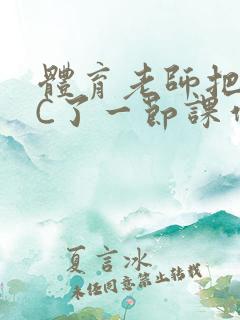 體育老師把
C了一節課
夏言冰
未經同意禁止轉載